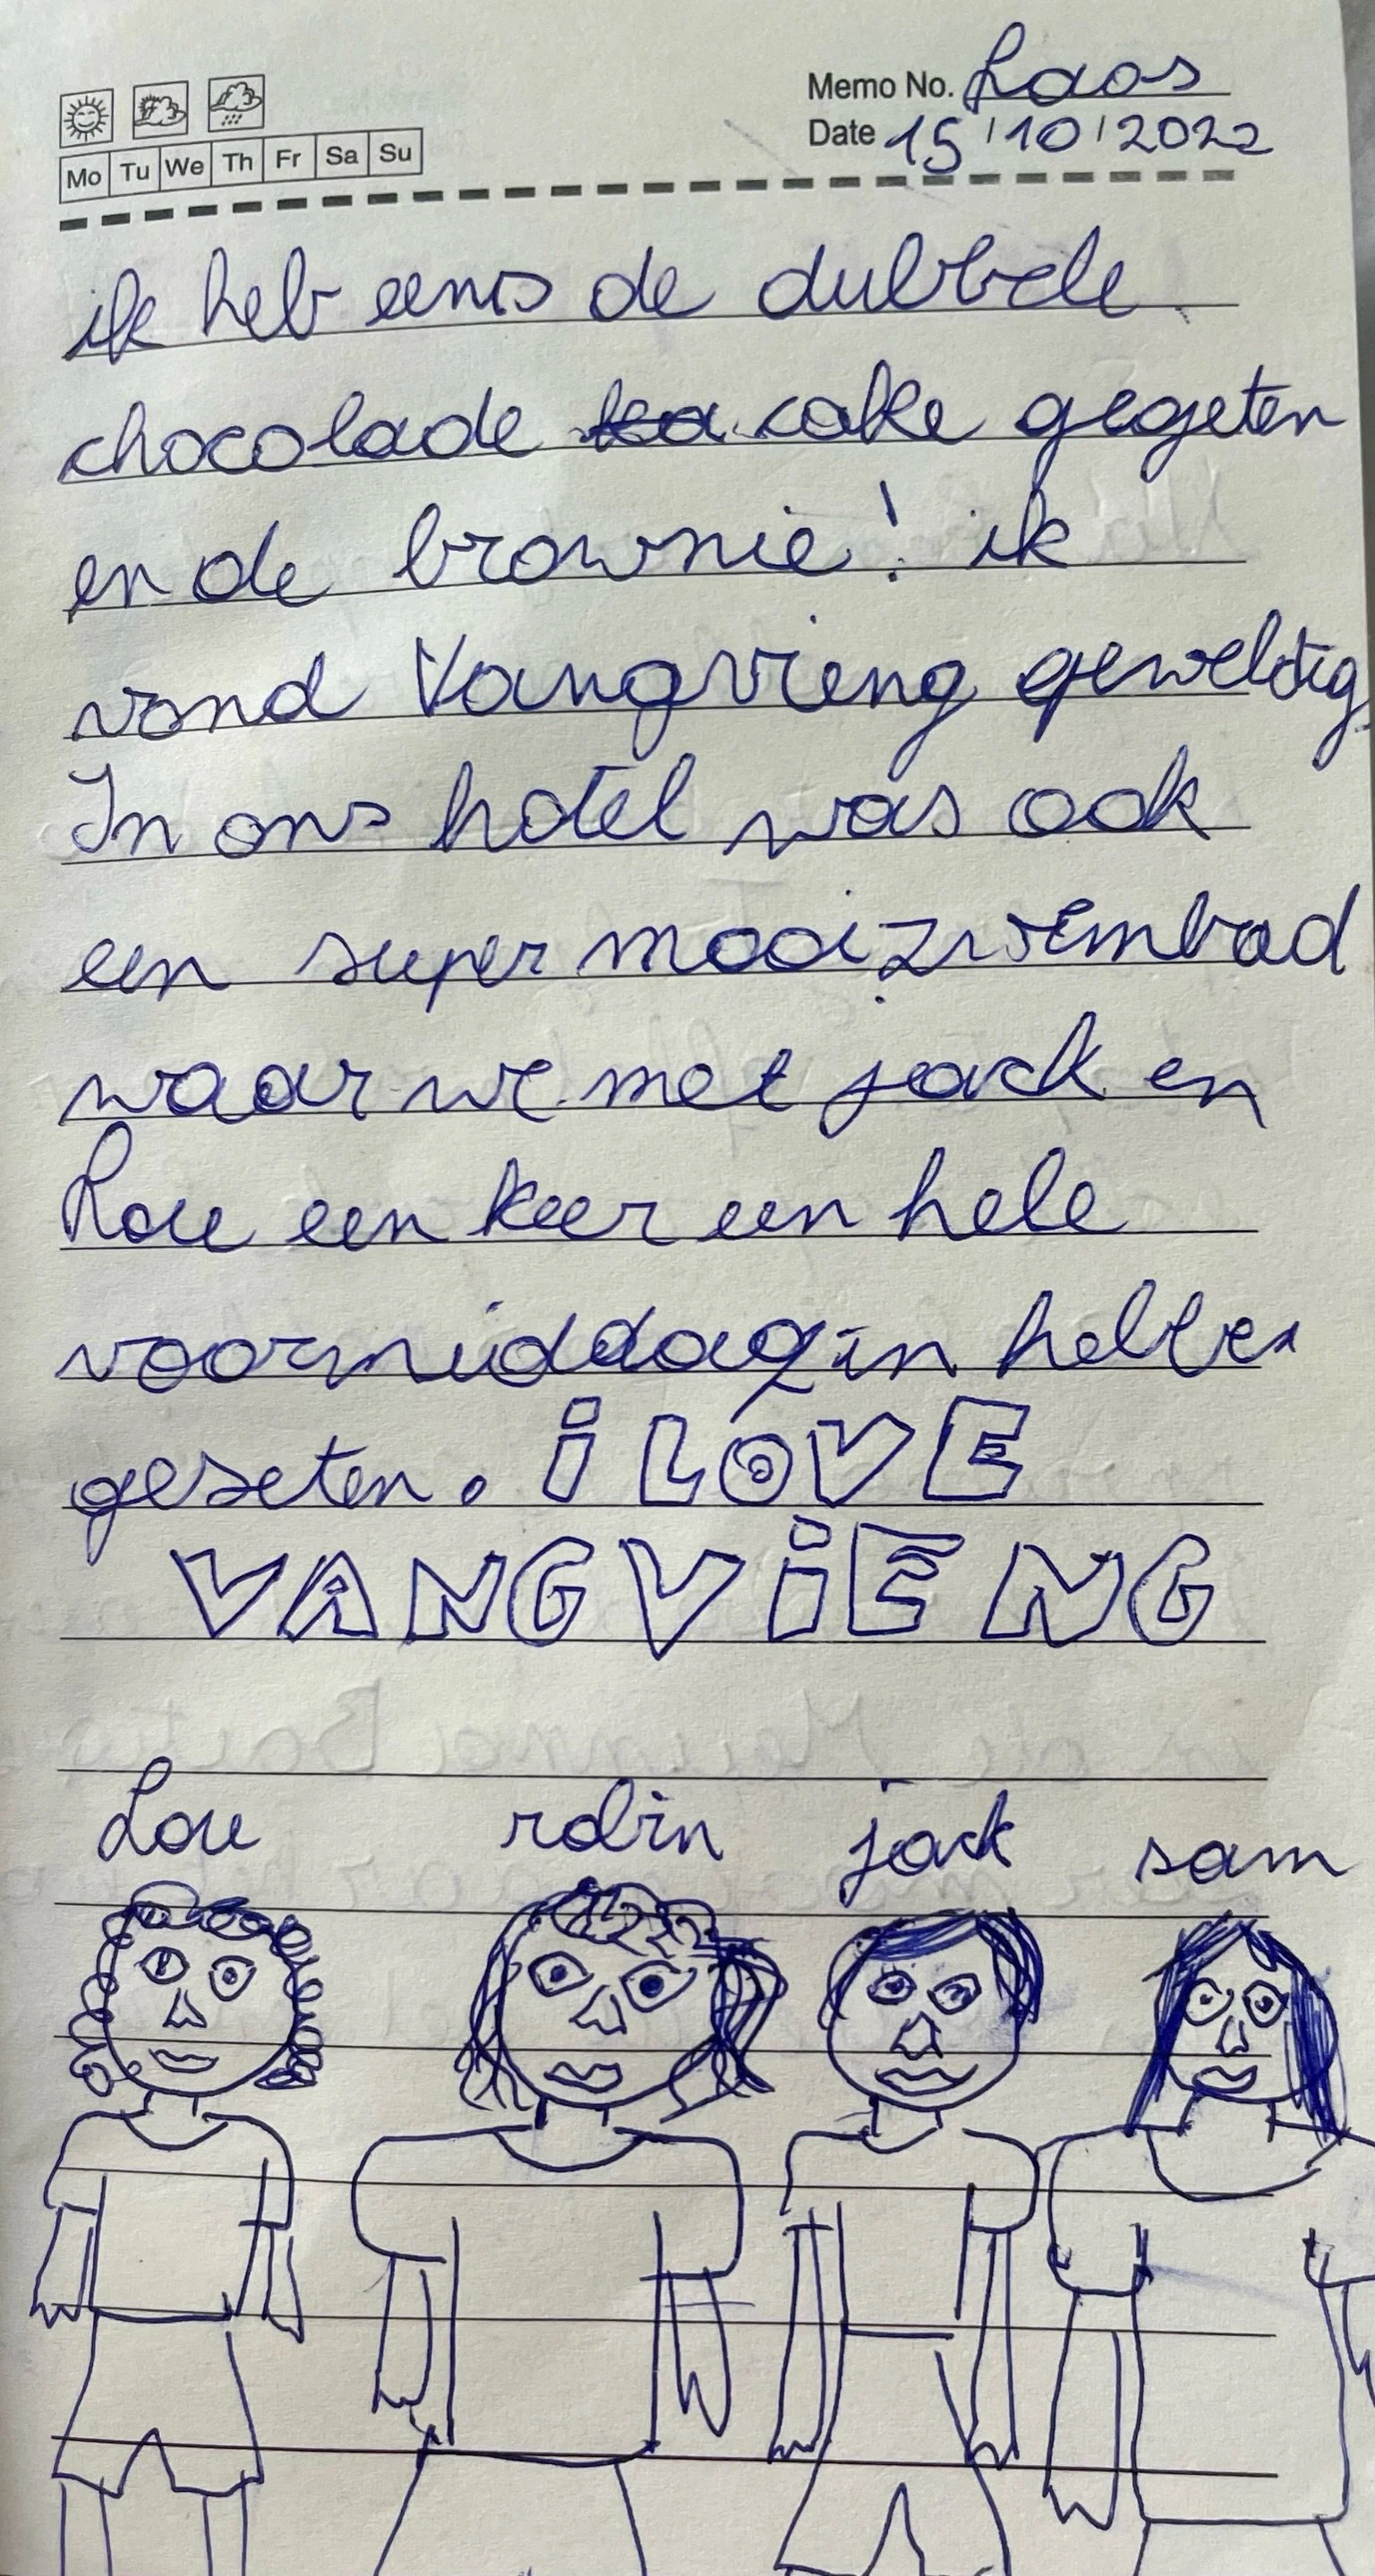 Memo No. Laos
Date 15/10/2022
Mo Tu We Th Fr Sa Su
ik heb eens de dubbele
chocolade cake gegeten
en de brownie! ik
vond Vangvieng geweldig
In ons hotel was ook
een super mooi zwembad
waar we met jack en
Lou een keer een hele
voormiddag in hebben
geseten. i LOVE
VANG ViENG
Lou robin jack sam